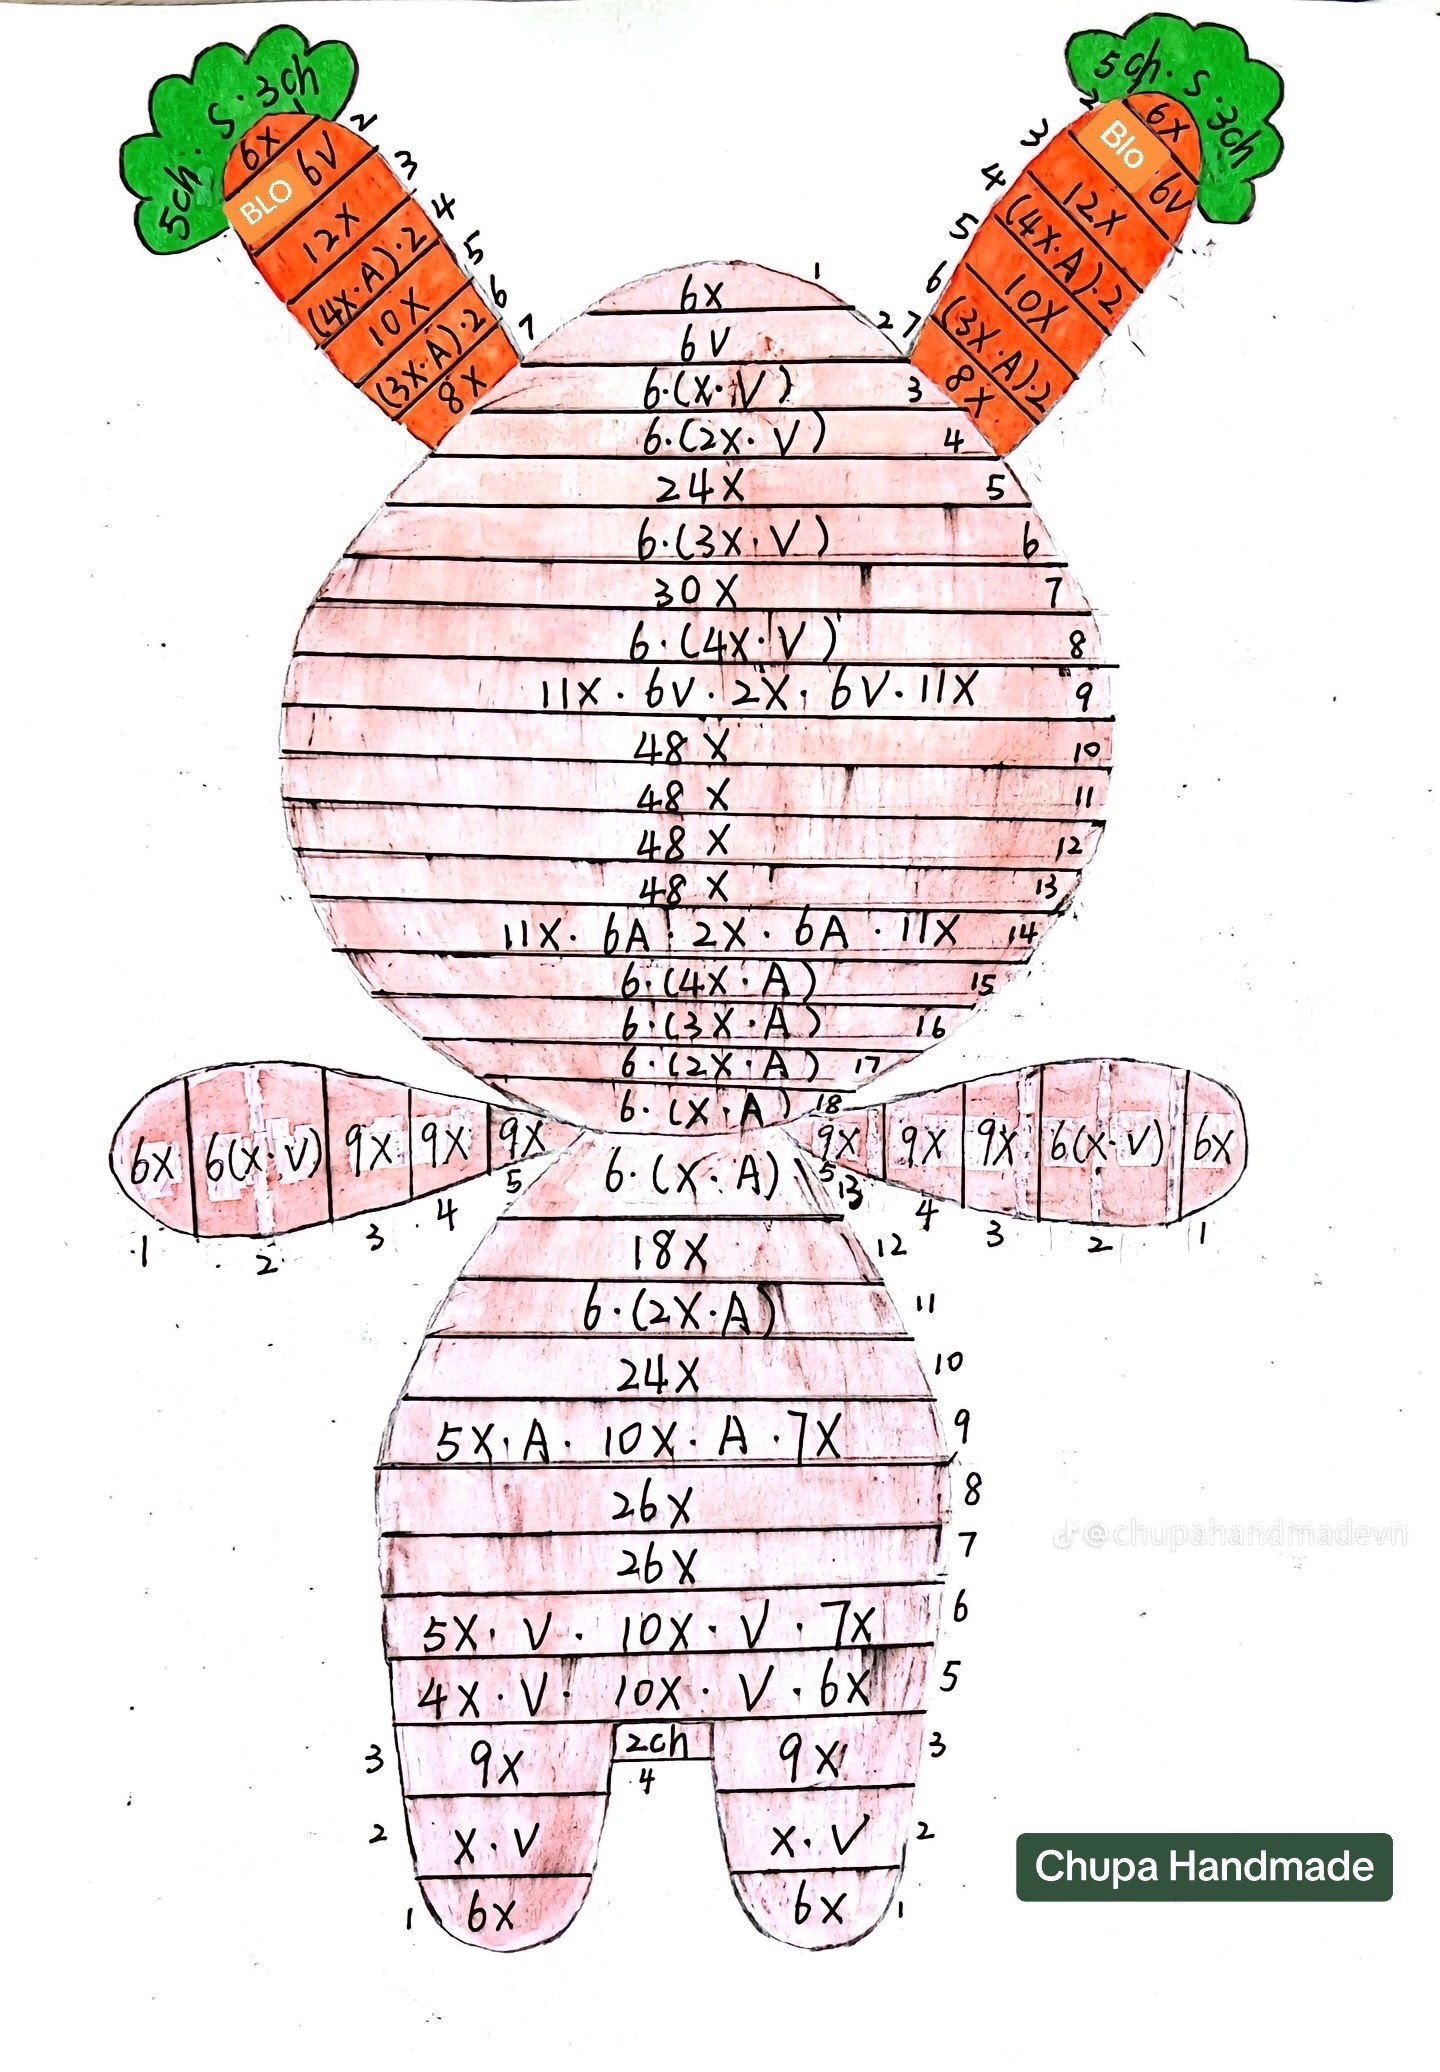 5ch. S. 3ch
1
6X
2
BLO 6V
3
12X
4
(4X.A).2
5
10X
6
(3X.A).2
7
8X
5ch. S. 3ch
6X
2
Blo 6V
3
12X
4
(4X.A).2
5
10X
6
(3X.A).2
7
8X
6X 1
6V 2
6.(X.V) 3
6.(2X.V) 4
24X 5
6.(3X.V) 6
30X 7
6.(4X.V) 8
11X.6V.2X.6V.11X 9
48X 10
48X 11
48X 12
48X 13
11X.6A.2X.6A.11X 14
6.(4X.A) 15
6.(3X.A) 16
6.(2X.A) 17
6.(X.A) 18
6X 6(X.V) 9X 9X 9X
1 2 3 4 5
9X 9X 9X 6(X.V) 6X
5 4 3 2 1
6.(X.A) 13
18X 12
6.(2X.A) 11
24X 10
5X.A.10X.A.7X 9
26X 8
26X 7
5X.V.10X.V.7X 6
4X.V.10X.V.6X 5
3 9X 2ch 9X 3
4
2 X.V X.V 2
1 6X 6X 1
@chupahandmadevn
Chupa Handmade